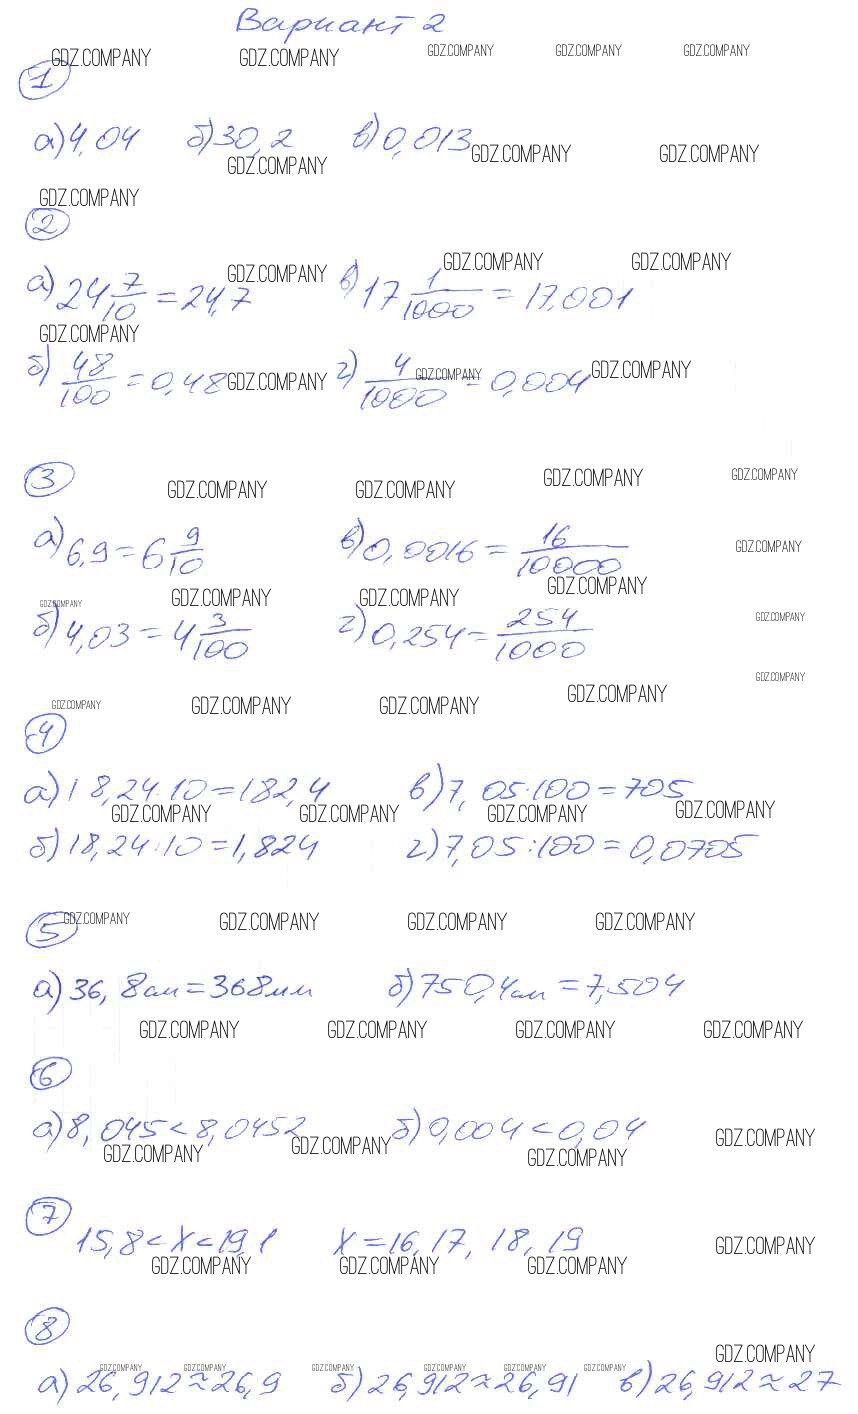 Вариант 2
GDZ.COMPANY GDZ.COMPANY GDZ.COMPANY GDZ.COMPANY GDZ.COMPANY
1
а) 4,04 б) 30,2 в) 0,013
GDZ.COMPANY GDZ.COMPANY GDZ.COMPANY
GDZ.COMPANY
2
GDZ.COMPANY GDZ.COMPANY GDZ.COMPANY
а) 24 7/10 = 24,7 в) 17 1/1000 = 17,001
GDZ.COMPANY
б) 48/100 = 0,48 г) 4/1000 = 0,004
GDZ.COMPANY GDZ.COMPANY GDZ.COMPANY
3
GDZ.COMPANY GDZ.COMPANY GDZ.COMPANY GDZ.COMPANY
а) 6,9 = 6 9/10 в) 0,0016 = 16/10000
GDZ.COMPANY
GDZ.COMPANY GDZ.COMPANY GDZ.COMPANY GDZ.COMPANY
б) 4,03 = 4 3/100 г) 0,254 = 254/1000
GDZ.COMPANY
GDZ.COMPANY
GDZ.COMPANY GDZ.COMPANY GDZ.COMPANY GDZ.COMPANY
4
а) 18,24·10 = 182,4 в) 7,05·100 = 705
GDZ.COMPANY GDZ.COMPANY GDZ.COMPANY GDZ.COMPANY
б) 18,24:10 = 1,824 г) 7,05:100 = 0,0705
5
GDZ.COMPANY GDZ.COMPANY GDZ.COMPANY GDZ.COMPANY
а) 36,8см = 368мм б) 750,4см = 7,504
GDZ.COMPANY GDZ.COMPANY GDZ.COMPANY GDZ.COMPANY
6
а) 8,045 < 8,0452 б) 0,004 < 0,04
GDZ.COMPANY GDZ.COMPANY GDZ.COMPANY GDZ.COMPANY
7
15,8 < x < 19,1 x = 16, 17, 18, 19
GDZ.COMPANY GDZ.COMPANY GDZ.COMPANY GDZ.COMPANY
8
GDZ.COMPANY
GDZ.COMPANY GDZ.COMPANY GDZ.COMPANY GDZ.COMPANY GDZ.COMPANY GDZ.COMPANY
а) 26,912 ≈ 26,9 б) 26,912 ≈ 26,91 в) 26,912 ≈ 27